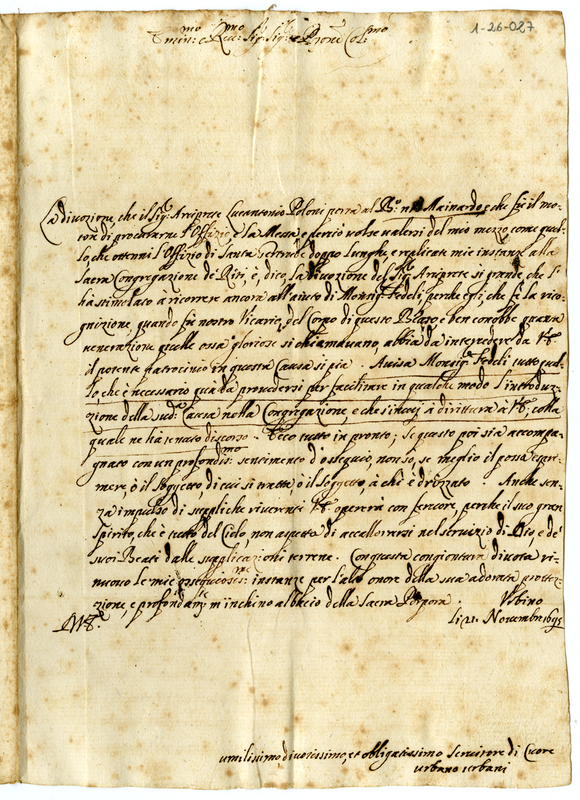 1-26-027
Emin:mo e Rev:mo Sig: Sig: e Prone Col:mo
La divozione, che il Sig: Arciprete Lucantonio Poloni porta al B:o nro Mainardo, e che fù il mo-
tor di procurarne l'Offizio e la Messa, e perciò volse valersi del mio mezzo, come quel-
lo, che ottenni l'Offizio di Santa doppo lunghe, e replicate mie instanze alla
Sacra Congregazione de Riti, è, dico, la divozione del Sig: Arciprete si grande che li
hà stimolato a ricorrere ancora all'aiuto di Monsig:r Fedeli, perche egli, che fè la rico-
gnizione, quando fù nostro Vicario, del Corpo di questo Beato, e ben conobbe quanta
venerazione quelle ossa gloriose si chiamavano, abbia da intercedere da V.E.
il potente patrocinio in questa Causa si pia. Avisa Monsig:r Fedeli tutto quel-
lo che è necessario quà da provedersi per facilitare in qualche modo l'introduz-
zione della sud:a Causa nella Congregazione, e che s'invij à dirittura à V.E. colla
quale ne hà tenuto discorso. Ecco tutto in pronto; se questo poi sia accompa-
gnato con un profondis:mo sentimento d'ossequio, non sò, se meglio il possa espri-
mere, ò il Soggetto, di cui si tratta, ò il Soggetto, à chi è drizzato. Anche sen-
za impulso di suppliche riverenti V.E. opererà con fervore, perche il suo gran
Spirito, che è tutto del Cielo, non aspetta di accallorarsi nel servizio di Dio, e de'
suoi Beati dalle supplicazioni terrene. Con questa congiontura divota ri-
nuovo le mie instanze per l'alto onore della sua adorata protez-
zione, e profondam:te m'inchino al bacio della Sacra Porpora. Urbino
di V.E. li 21. Novembre 1695
umilissimo divotissimo, et obligatissimo Servitore di Cuore
Urbano Urbani